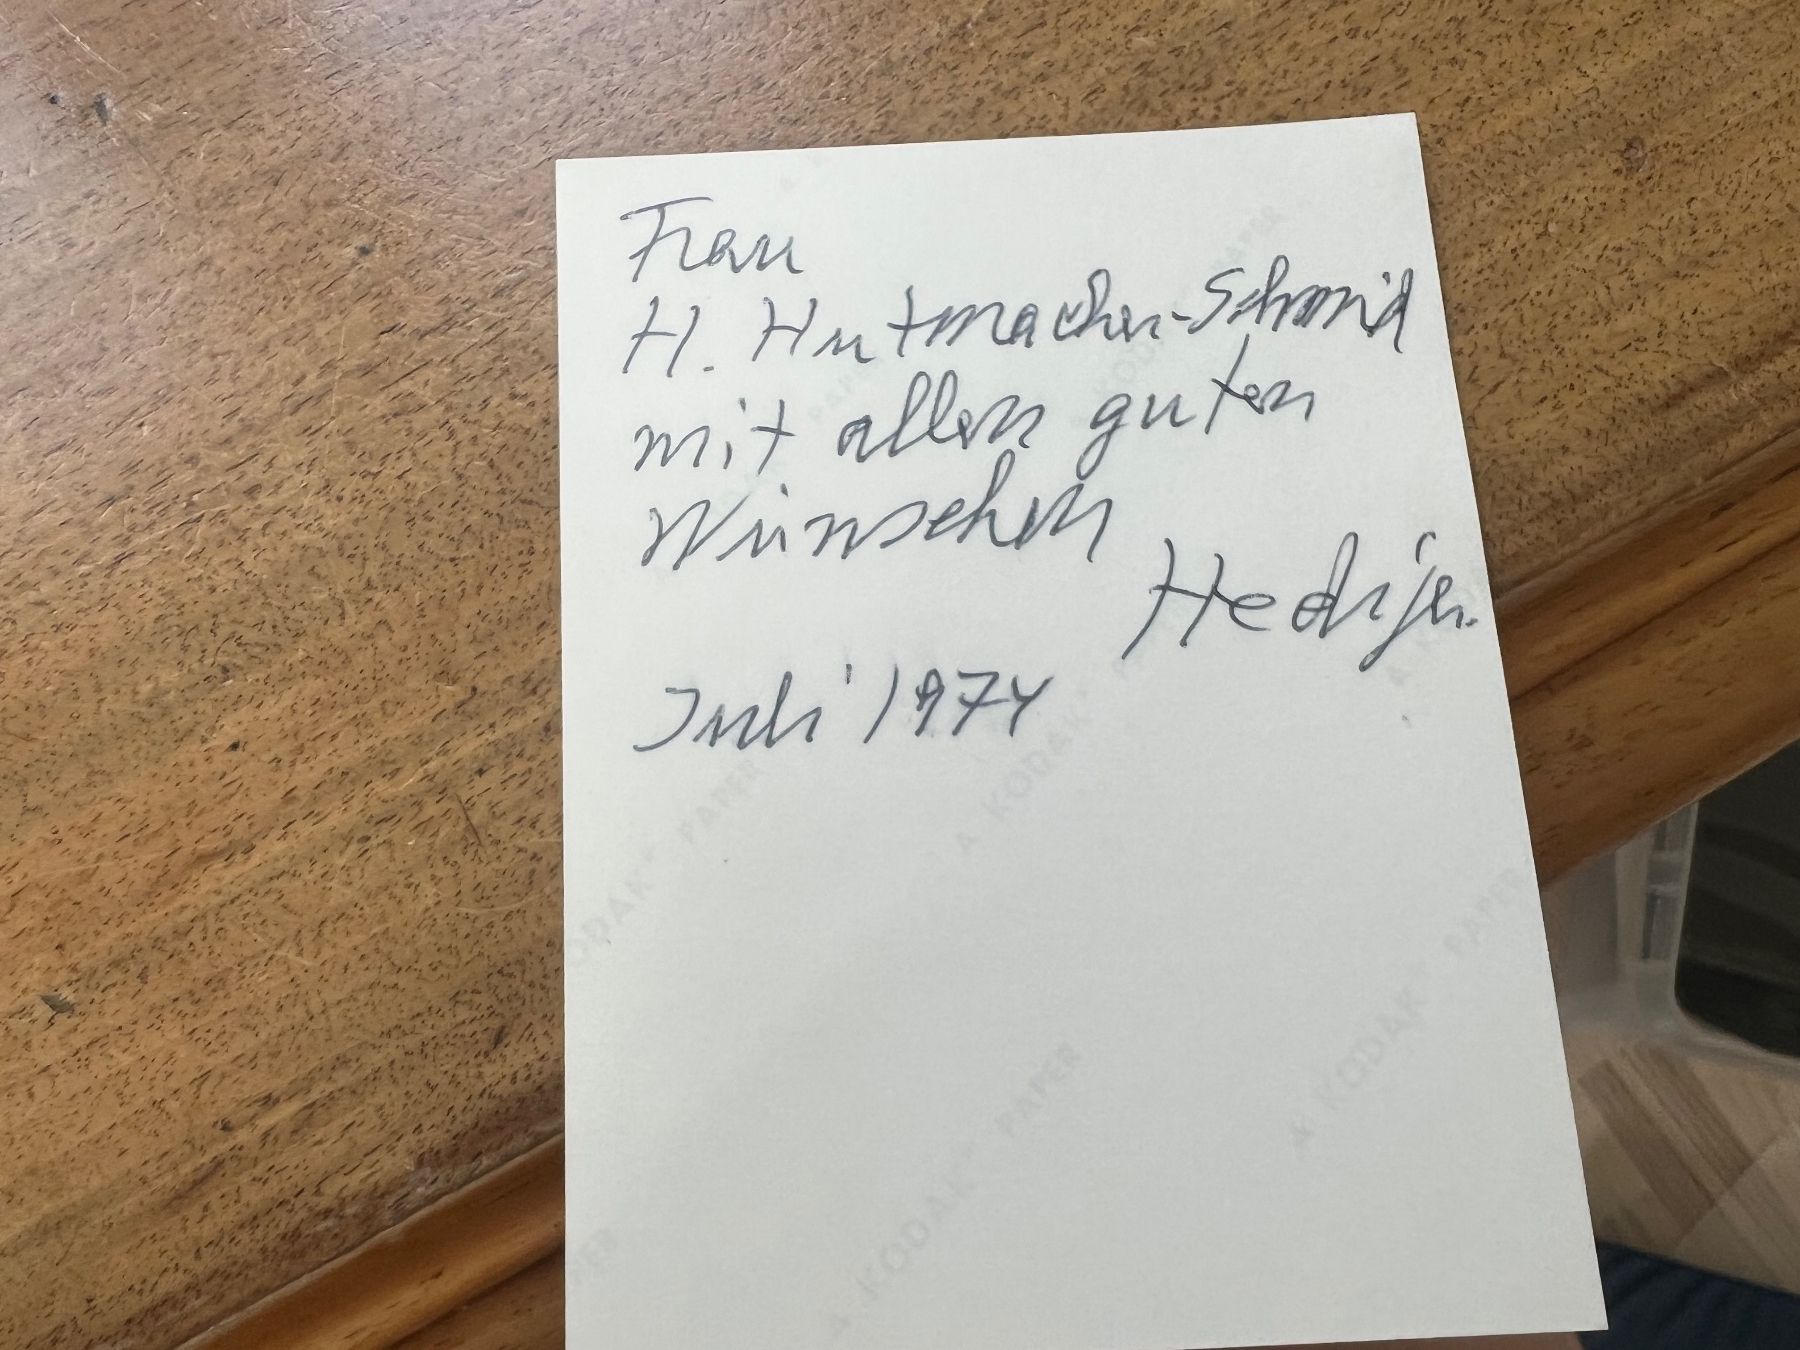 Frau
H. Hutmacher-Schmid
mit allen guten
Wünschen
Hediger.
Juli 1974
PAPER
KODAK PAPER
A KODAK
KODAK PAPER
KODAK PAPER
A KODAK PAPER
PAPER